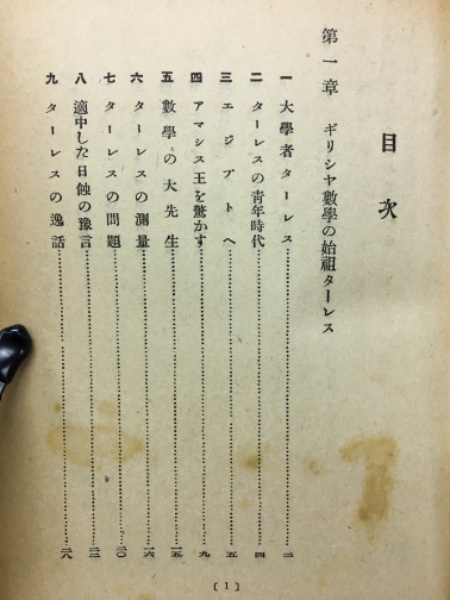 目次
第一章 ギリシヤ數學の始祖ターレス
一 大學者ターレス……二
二 ターレスの靑年時代……四
三 エジプトへ……五
四 アマシス王を驚かす……九
五 數學の大先生……一五
六 ターレスの測量……一六
七 ターレスの問題……二〇
八 適中した日蝕の豫言……二二
九 ターレスの逸話……二八
〔1〕